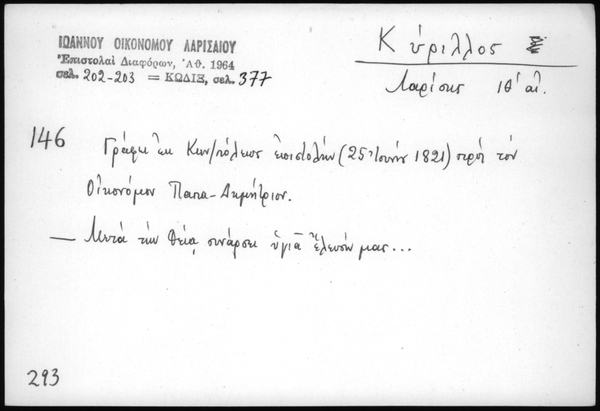 ΙΩΑΝΝΟΥ ΟΙΚΟΝΟΜΟΥ ΛΑΡΙΣΑΙΟΥ
Ἐπιστολαὶ Διαφόρων, Ἀθ. 1964
σελ. 202-203 = ΚΩΔΙΞ, σελ. 377
Κύριλλος
Λαρίσης ΙΘ΄ αἰ.
146
Γράφει ἐκ Κων/πόλεως ἐπιστολήν (25 Ἰουνίου 1821) πρός τόν
Οἰκονόμον Παπα-Δημήτριον.
— Μετά τήν θείᾳ συνάρσει ὑγιᾶ ἔλευσίν μας...
293